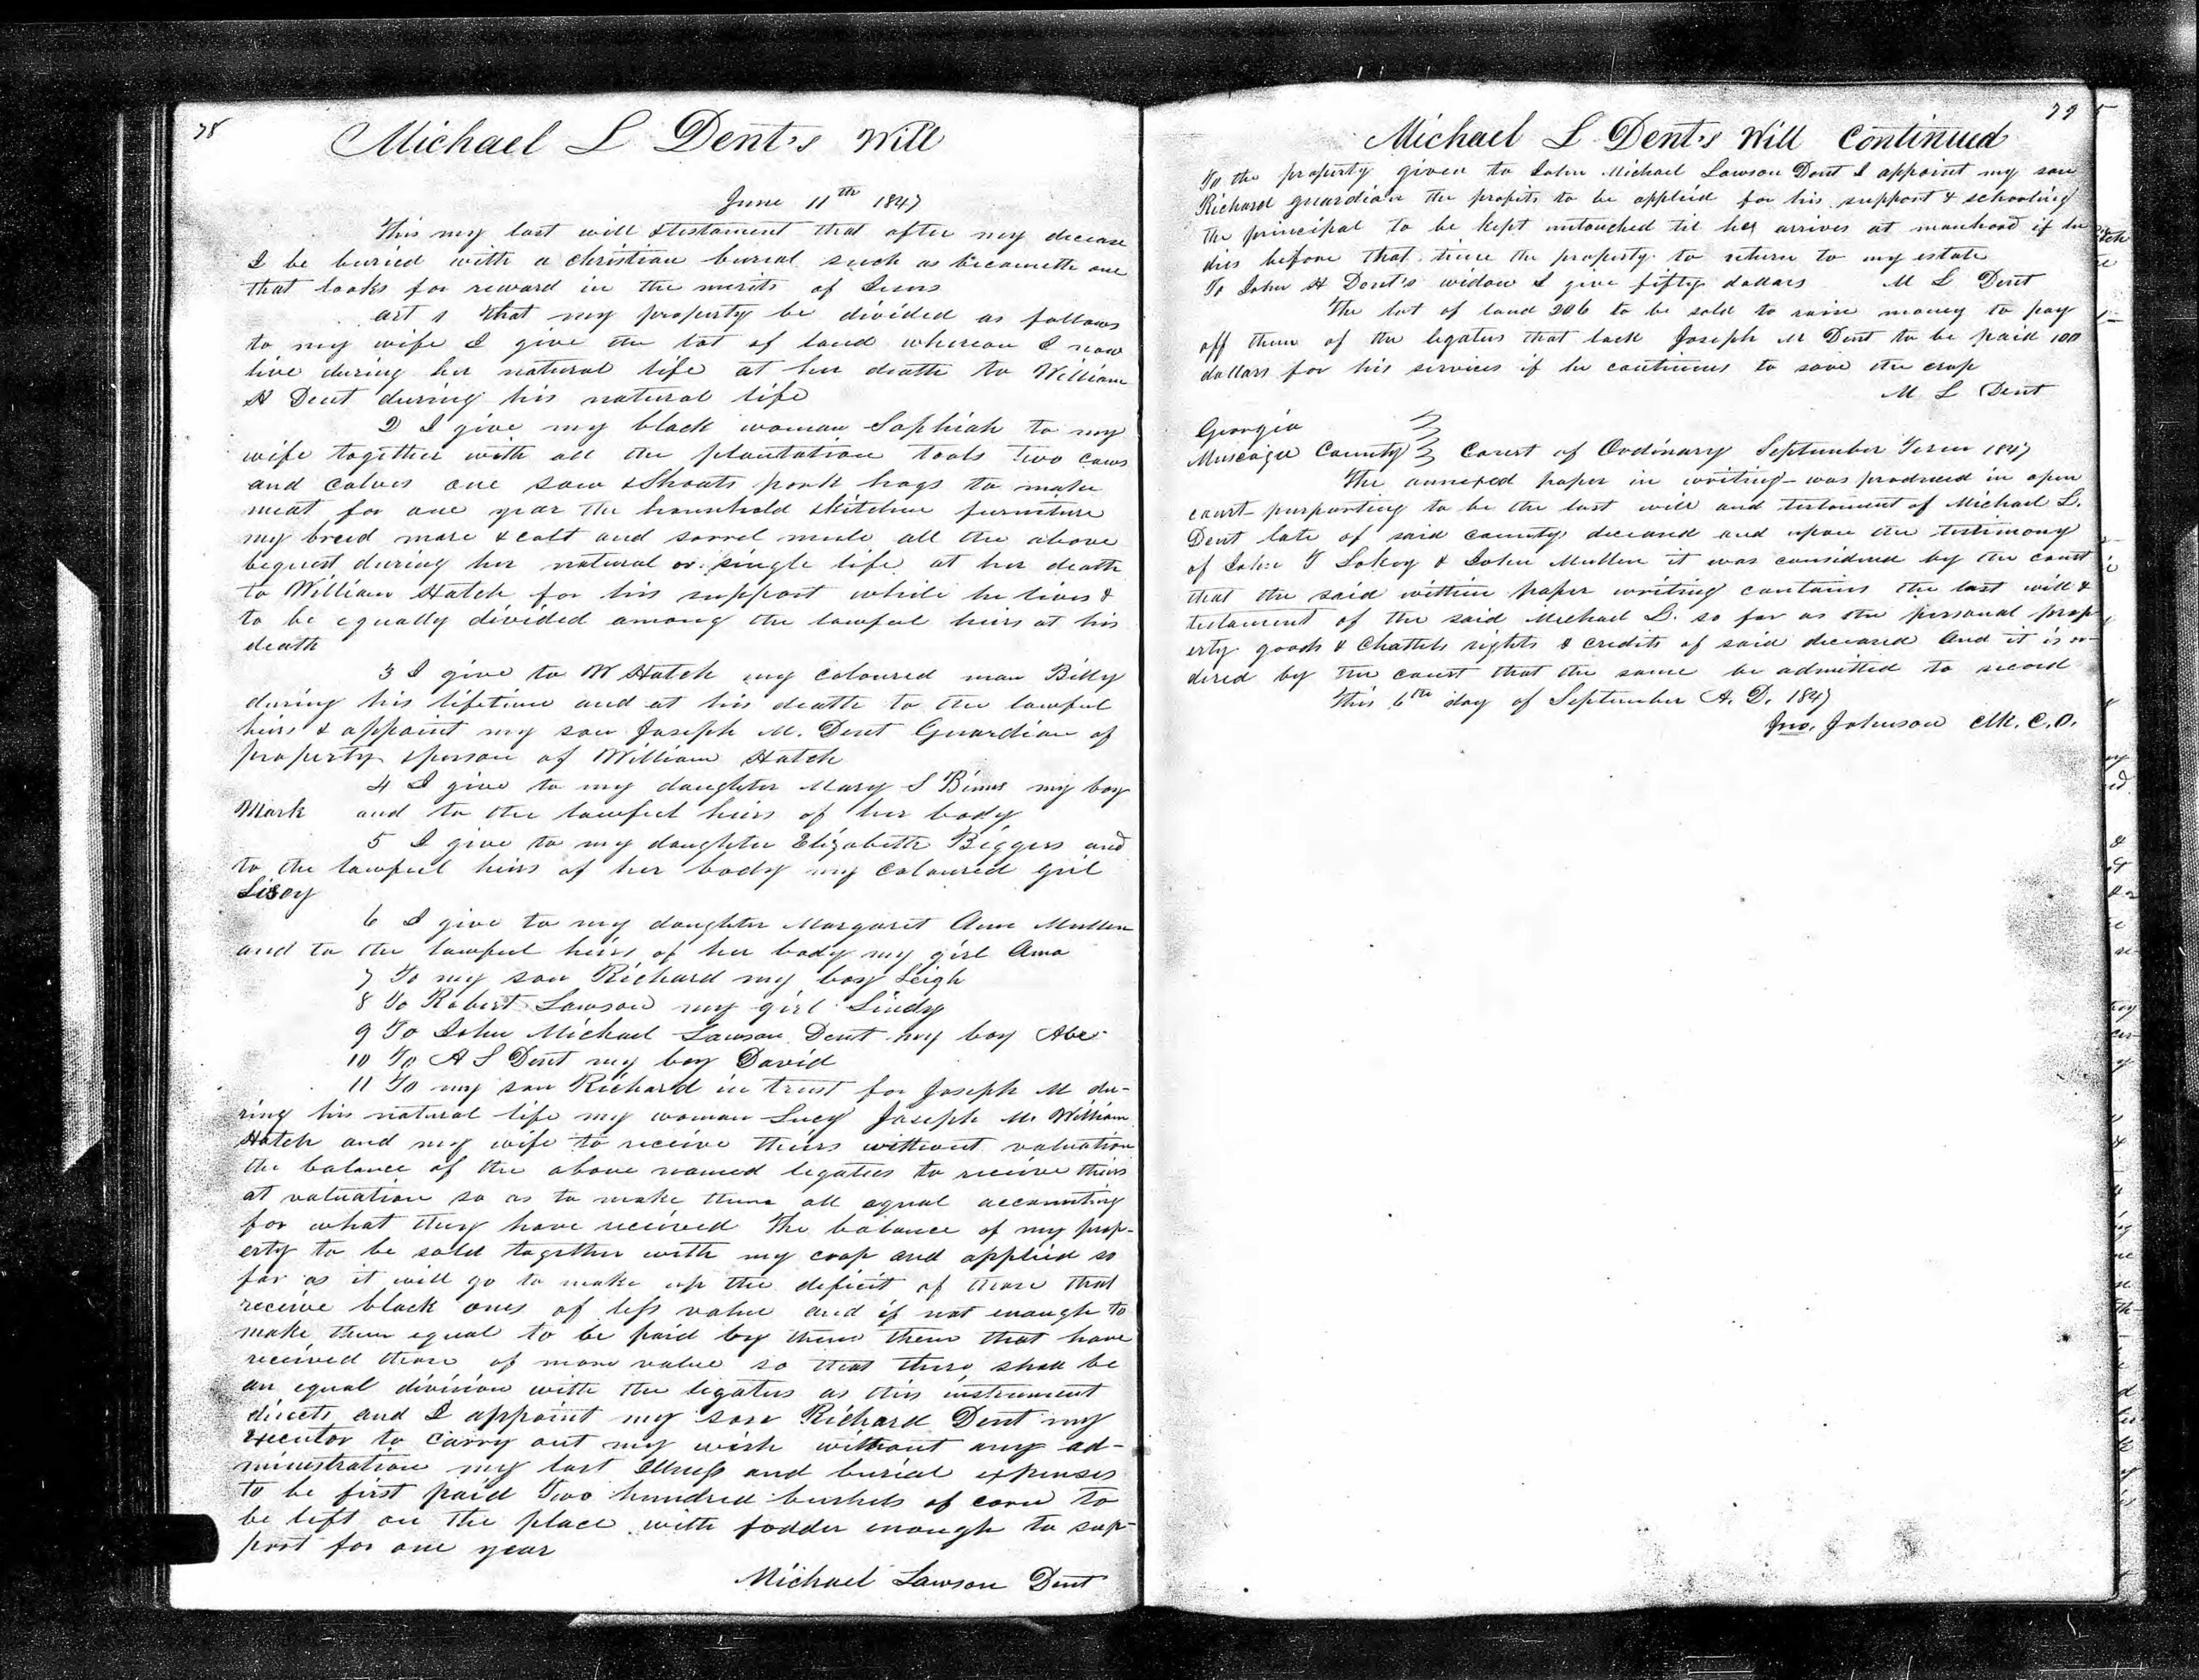 78
Michael L Dent's Will
June 11th 1847
This my last will & testament that after my decease
I be buried with a christian burial such as becometh one
that looks for reward in the merits of Jesus
art 1 that my property be divided as follows
to my wife I give the lot of land whereon I now
live during her natural life at her death to William
H Dent during his natural life
2 I give my black woman Sophiah to my
wife together with all the plantation tools Two cows
and calves one sow & Shoats pork hogs to make
meat for one year the household & kitchen furniture
my breed mare & colt and sorrel mule all the above
bequest during her natural or single life at her death
to William Hatch for his support while he lives &
to be equally divided among the lawful heirs at his
death
3 I give to W Hatch my coloured man Billy
during his lifetime and at his death to the lawful
heirs & appoint my son Joseph M. Dent Guardian of
property & person of William Hatch
4 I give to my daughter Mary S Binns my boy
Mark and to the lawful heirs of her body
5 I give to my daughter Elizabeth Biggers and
to the lawful heirs of her body my coloured girl
6 I give to my daughter Margaret Ann Mullen
and to the lawful heirs of her body my girl Ama
7 To my son Richard my boy Leigh
8 To Robert Lawson my girl Lindy
9 To John Michael Lawson Dent my boy Abe
10 To A S Dent my boy David
11 To my son Richard in trust for Joseph M du-
ring his natural life my woman Lucy Joseph M. William
Hatch and my wife to receive theirs without valuation
the balance of the above named legatees to receive theirs
at valuation so as to make them all equal accounting
for what they have received The balance of my prop-
erty to be sold together with my crop and applied so
far as it will go to make up the deficit of those that
receive black ones of less value and if not enough to
make them equal to be paid by them them that have
received those of more value so that there shall be
an equal division with the legatees as this instrument
directs and I appoint my son Richard Dent my
executor to carry out my wish without any ad-
ministration my last Illness and burial expenses
to be first paid Two hundred bushels of corn to
be left on the place with fodder enough to sup-
port for one year
Michael Lawson Dent
79
Michael L Dent's Will Continued
To the property given to John Michael Lawson Dent I appoint my son
Richard guardian the profits to be applied for his support & schooling
the principal to be kept untouched til he arrives at manhood if he
dies before that time the property to return to my estate
To John H Dent's widow I give fifty dollars M L Dent
The lot of land 206 to be sold to raise money to pay
off them of the legatees that lack Joseph M Dent to be paid 100
dollars for his services if he continues to save the crop
M L Dent
Georgia
Muscogee County Court of Ordinary September Term 1847
The annexed paper in writing was produced in open
court purporting to be the last will and testament of Michael L.
Dent late of said county deceased and upon the testimony
of John T Lokey & John Mullen it was considered by the court
that the said within paper writing contains the last will &
testament of the said Michael L. so far as the personal prop
erty goods & Chattels rights & credits of said deceased And it is or-
dered by the court that the same be admitted to record
This 6th day of September A. D. 1847
Jno. Johnson Clk. C. O.